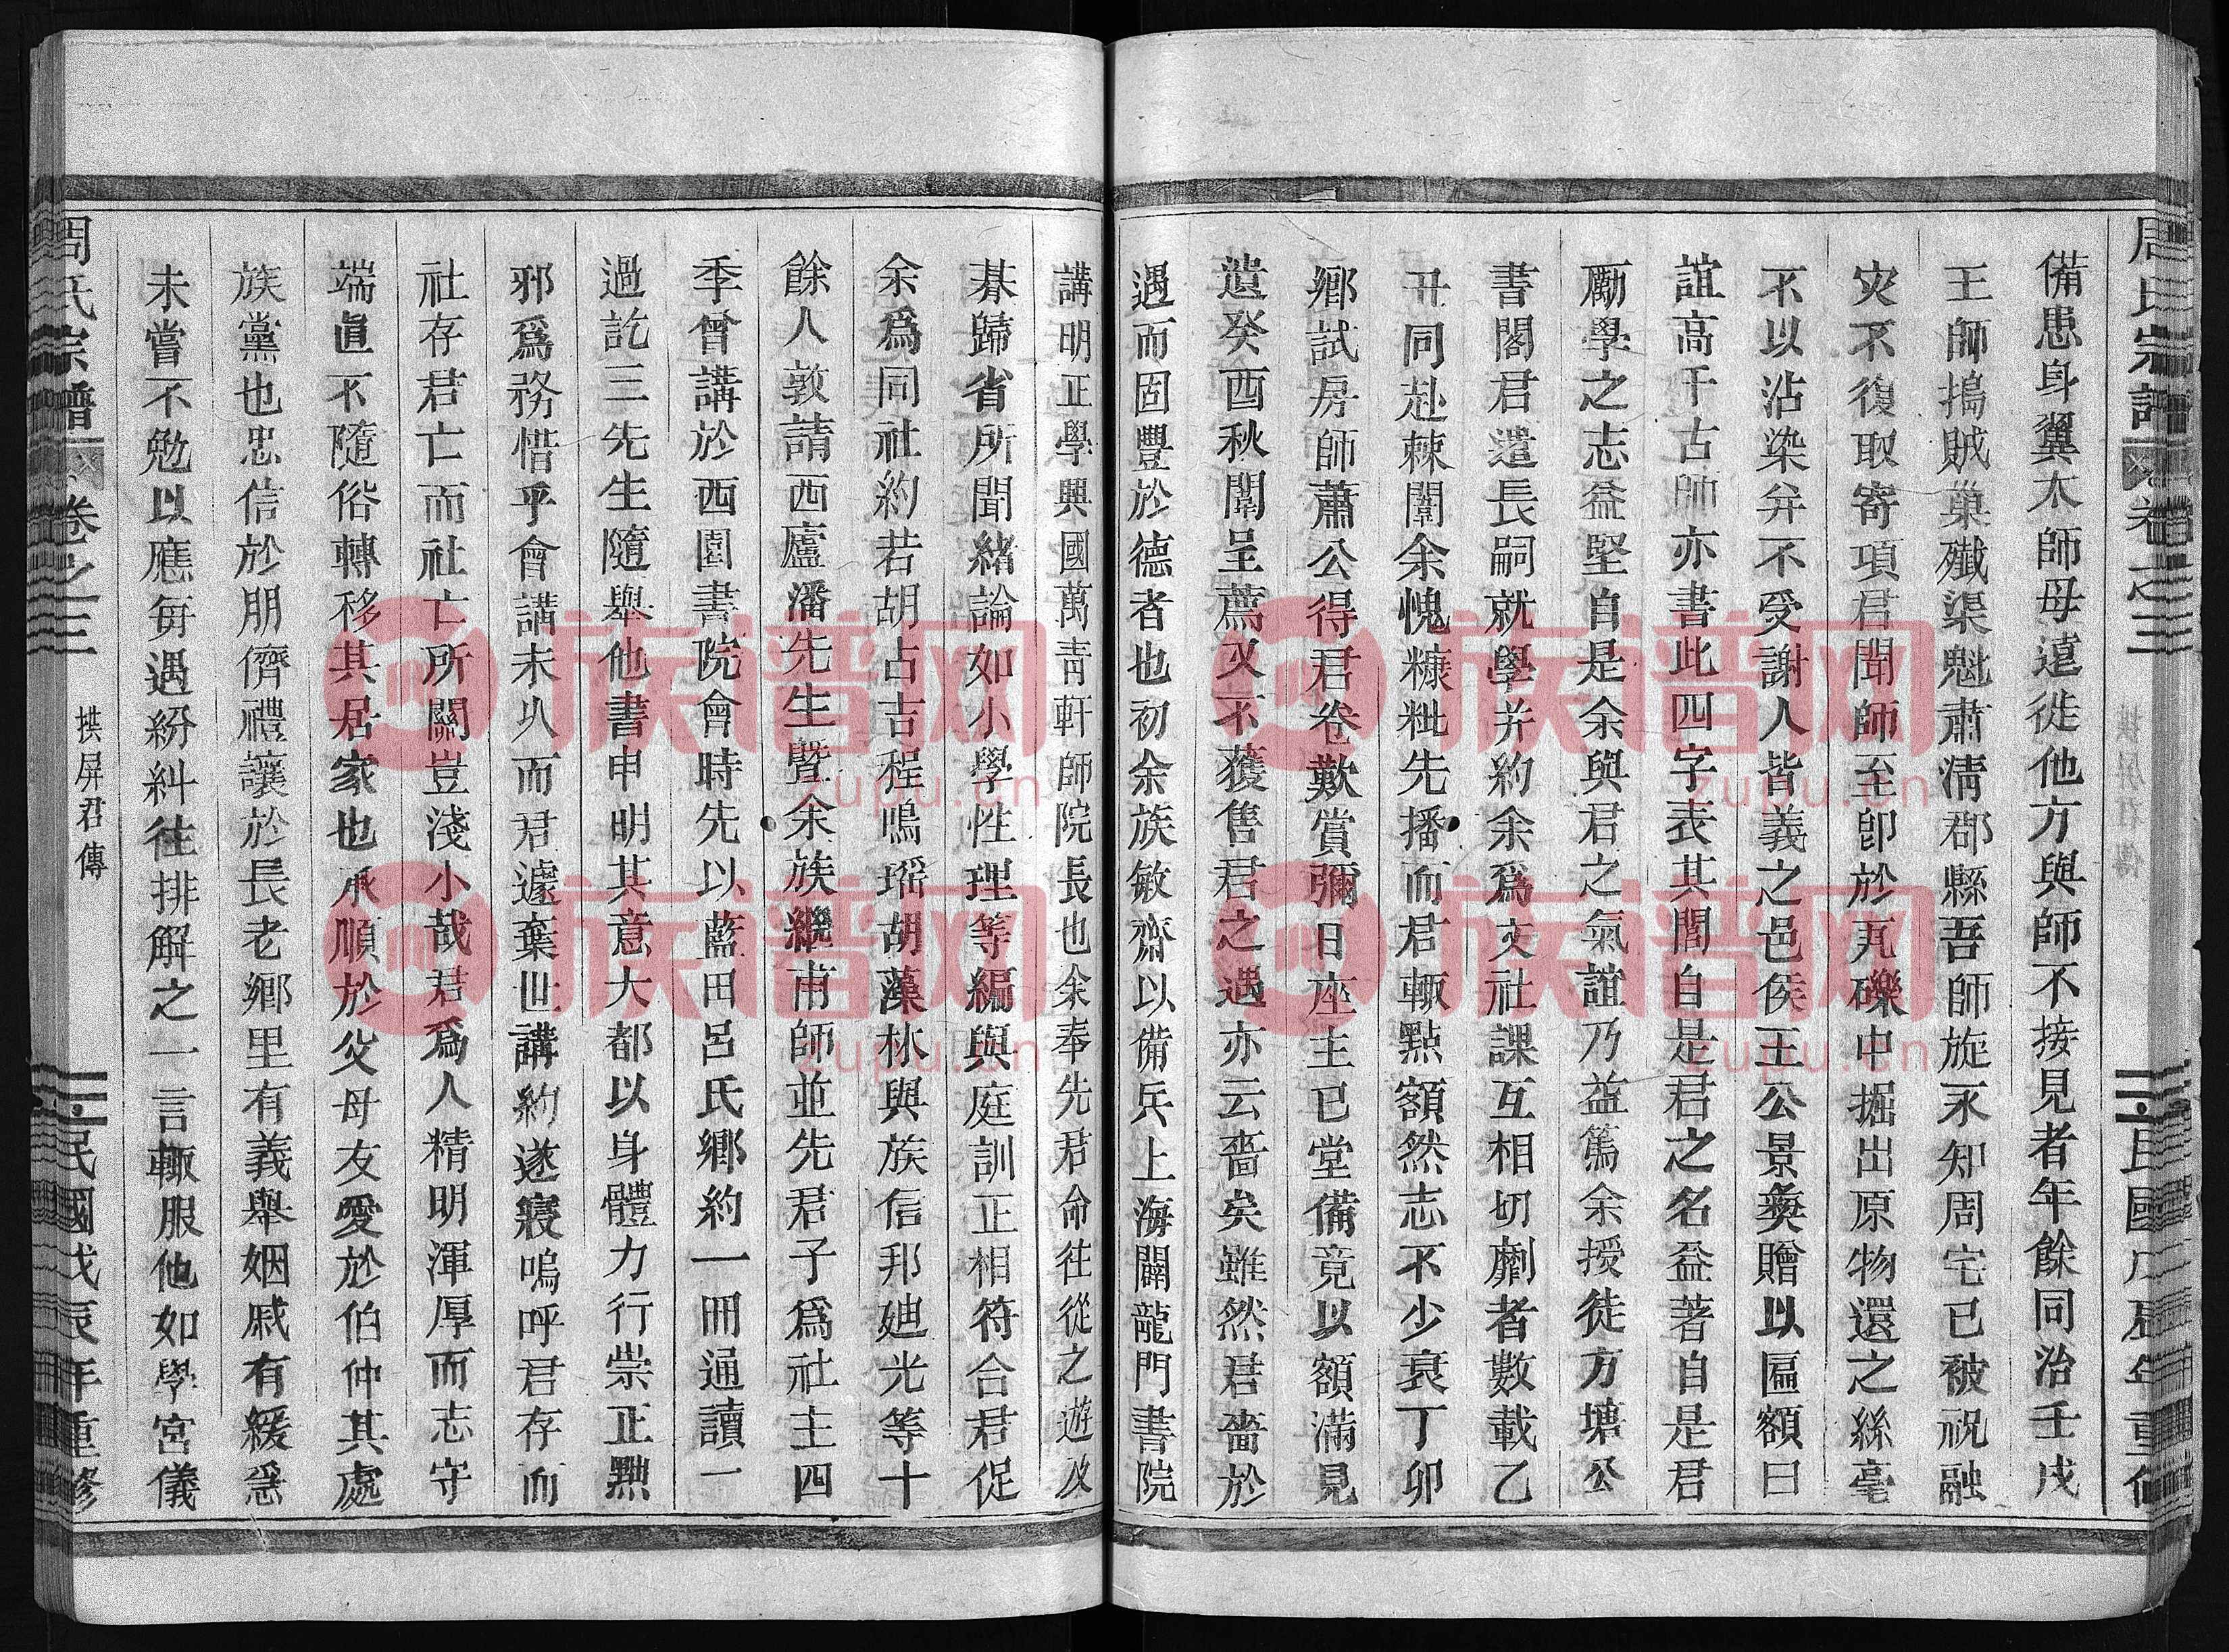 周氏宗譜 卷之三 拱屏君傳 民國戊辰年重修
備患身翼太師母遠徙他方與師不接見者年餘同治壬戌
王師搗賊巢殲渠魁肅清郡縣吾師旋永知周宅已被祝融
灾不復取寄項君聞師至卽於瓦礫中掘出原物還之絲毫
不以沾染弁不受謝人皆義之邑侯王公景彜贈以匾額曰
誼高千古師亦書此四字表其閭自是君之名益著自是君
勵學之志益堅自是余與君之氣誼乃益篤余授徒方塘公
書閣君遣長嗣就學并約余爲文社課互相切劘者數載乙
丑同赴棘闈余愧糠粃先播而君輙點額然志不少衰丁卯
鄉試房師蕭公得君卷歎賞彌日座主已堂備竟以額滿見
遺癸酉秋闈呈薦又不獲售君之遇亦云嗇矣雖然君嗇於
遇而固豐於德者也初余族敏齋以備兵上海闢龍門書院
講明正學興國萬青軒師院長也余奉先君命往從之遊及
朞歸省所聞緒論如小學性理等編與庭訓正相符合君促
余爲同社約若胡占吉程鳴瑶胡藻林與族信邦廸光等十
餘人敦請西廬潘先生暨余族繼甫師並先君子爲社主四
季會講於西園書院會時先以藍田呂氏鄉約一冊通讀一
過訖三先生隨舉他書申明其意大都以身體力行崇正黜
邪爲務惜乎會講未乆而君遽棄世講約遂寢嗚呼君存而
社存君亡而社亡所關豈淺小哉君爲人精明渾厚而志守
端眞不隨俗轉移其居家也承順於父母友愛於伯仲其處
族黨也忠信於朋儕禮讓於長老鄉里有義舉姻戚有緩急
未嘗不勉以應每遇紛糾往排解之一言輙服他如學宮儀
周氏宗譜 卷之三 拱屏君傳 民國戊辰年重修
族谱网
zupu.cn
族谱网
zupu.cn
族谱网
zupu.cn
族谱网
zupu.cn